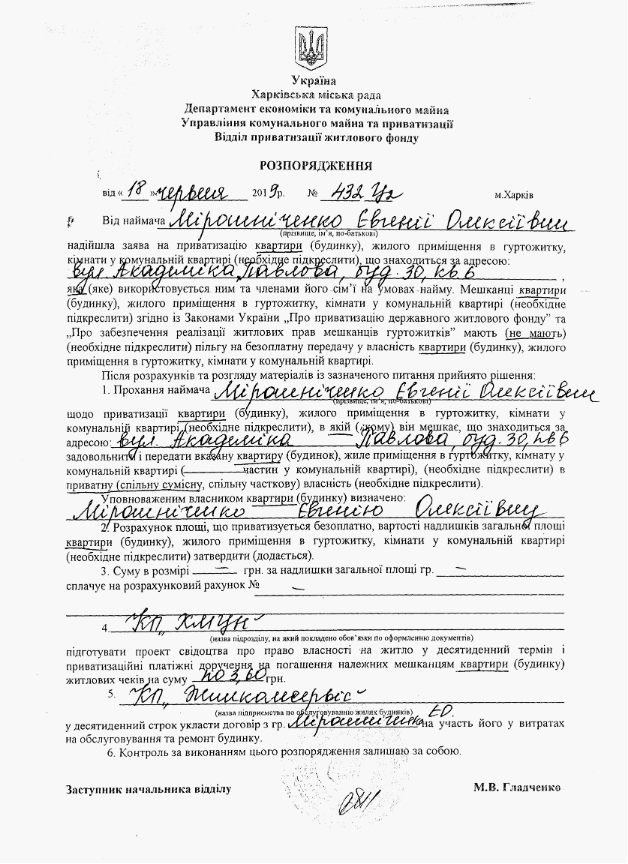 Україна
Харківська міська рада
Департамент економіки та комунального майна
Управління комунального майна та приватизації
Відділ приватизації житлового фонду
РОЗПОРЯДЖЕННЯ
від « 18 » червня 2019р. № 432 м.Харків
Від наймача Мірошніченко Евгенії Олексіївни
(прізвище, ім'я, по-батькові)
надійшла заява на приватизацію квартири (будинку), жилого приміщення в гуртожитку,
кімнати у комунальній квартирі (необхідне підкреслити), що знаходиться за адресою:
вул Академіка Павлова, буд. 30, кв. 6 ,
яка (яке) використовується ним та членами його сім'ї на умовах найму. Мешканці квартири
(будинку), жилого приміщення в гуртожитку, кімнати у комунальній квартирі (необхідне
підкреслити) згідно із Законами України „Про приватизацію державного житлового фонду" та
„Про забезпечення реалізації житлових прав мешканців гуртожитків" мають (не мають)
(необхідне підкреслити) пільгу на безоплатну передачу у власність квартири (будинку), жилого
приміщення в гуртожитку, кімнати у комунальній квартирі.
Після розрахунків та розгляду матеріалів із зазначеного питання прийнято рішення:
1. Прохання наймача Мірошніченко Евгенії Олексіївни
(прізвище, ім'я, по-батькові)
щодо приватизації квартири (будинку), жилого приміщення в гуртожитку, кімнати у
комунальній квартирі (необхідне підкреслити), в якій (якому) він мешкає, що знаходиться за
адресою: вул. Академіка Павлова, буд. 30, кв 6
задовольнити і передати вказану квартиру (будинок), жиле приміщення в гуртожитку, кімнату у
комунальній квартирі (— частин у комунальній квартирі), (необхідне підкреслити) в
приватну (спільну сумісну, спільну часткову) власність (необхідне підкреслити).
Уповноваженим власником квартири (будинку) визначено:
Мірошніченко Евгенію Олексіївну
2. Розрахунок площі, що приватизується безоплатно, вартості надлишків загальної площі
квартири (будинку), жилого приміщення в гуртожитку, кімнати у комунальній квартирі
(необхідне підкреслити) затвердити (додається).
3. Суму в розмірі — грн. за надлишки загальної площі гр. —
сплачує на розрахунковий рахунок № —
4. КП „ХМЦН"
(назва підрозділу, на який покладено обов'язки по оформленню документів)
підготувати проект свідоцтва про право власності на житло у десятиденний термін і
приватизаційні платіжні доручення на погашення належних мешканцям квартири (будинку)
житлових чеків на суму по 3,60 грн.
5. КП „Жилкомсервіс"
(назва підприємства по обслуговуванню жилих будинків)
у десятиденний строк укласти договір з гр. Мірошніченко ЕО. на участь його у витратах
на обслуговування та ремонт будинку.
6. Контроль за виконанням цього розпорядження залишаю за собою.
Заступник начальника відділу М.В. Гладченко